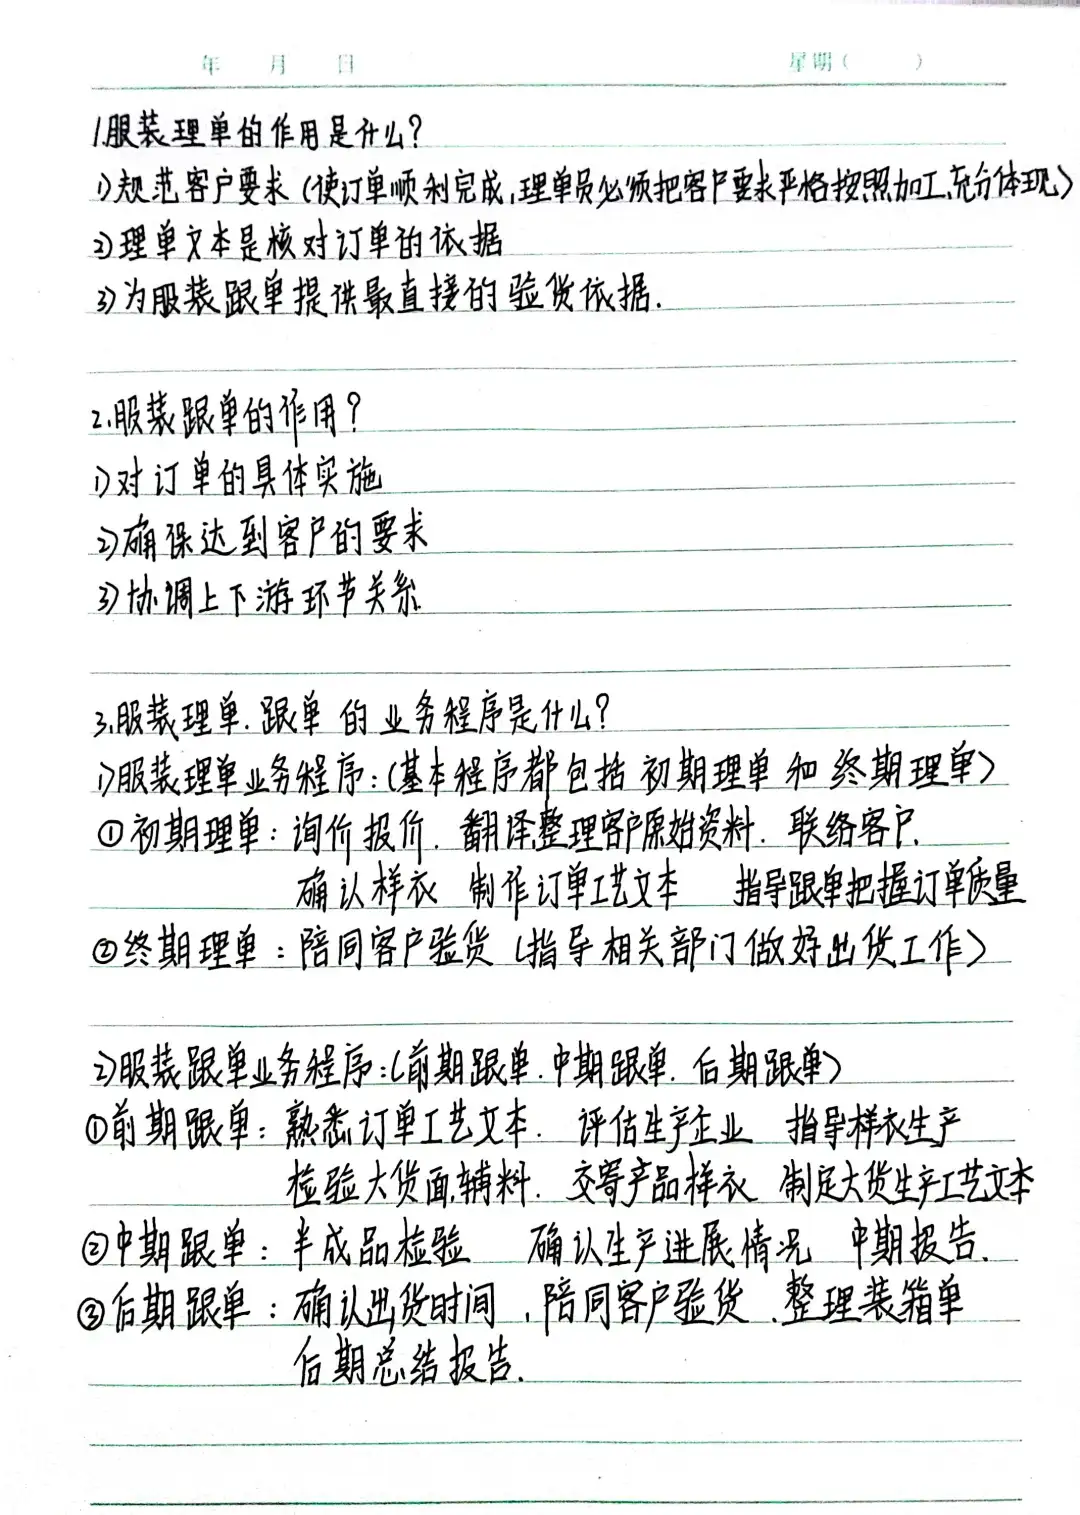 年 月 日 星期( )
1.服装理单的作用是什么?
1)规范客户要求(使订单顺利完成,理单员必须把客户要求严格按照加工,充分体现)
2)理单文本是核对订单的依据
3)为服装跟单提供最直接的验货依据.
2.服装跟单的作用?
1)对订单的具体实施
2)确保达到客户的要求
3)协调上下游环节关系
3.服装理单.跟单的业务程序是什么?
1)服装理单业务程序:(基本程序都包括初期理单和终期理单)
①初期理单:询价报价.翻译整理客户原始资料.联络客户.
确认样衣 制作订单工艺文本 指导跟单把握订单质量
②终期理单:陪同客户验货(指导相关部门做好出货工作)
2)服装跟单业务程序:(前期跟单.中期跟单.后期跟单)
①前期跟单:熟悉订单工艺文本. 评估生产企业 指导样衣生产
检验大货面,辅料. 交寄产品样衣 制定大货生产工艺文本
②中期跟单:半成品检验 确认生产进展情况 中期报告.
③后期跟单:确认出货时间,陪同客户验货.整理装箱单
后期总结报告.